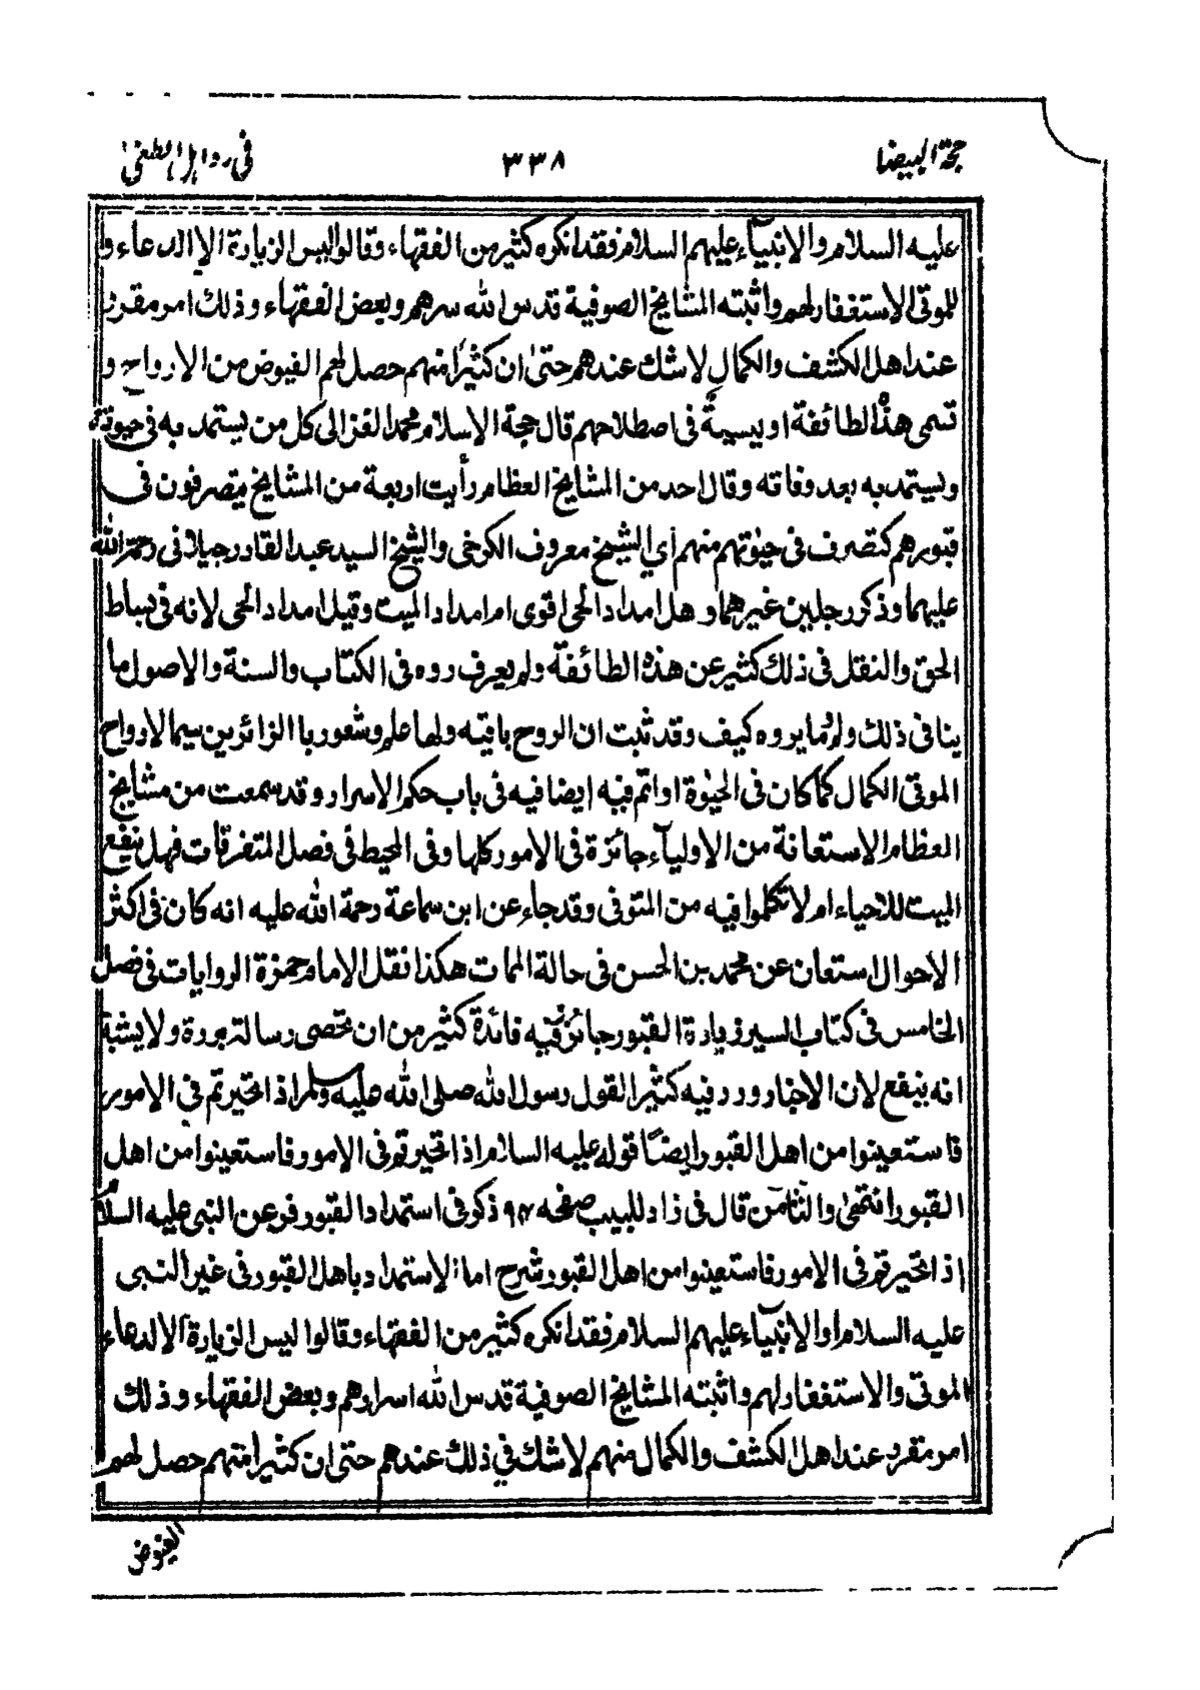 حجة البيضا
٣٣٨
فى رد اهل الطغى
عليه السلام والانبيآء عليهم السلام فقد انكره كثير من الفقهاء وقالوا ليس الزيارة الا الدعاء و
للموتى الاستغفار لهم واثبته المشايخ الصوفية قدس الله سرهم وبعض الفقهاء وذلك امر مقرر
عند اهل الكشف والكمال لا شك عندهم حتى ان كثيرا منهم حصل لهم الفيوض من الارواح و
تسمى هذه الطائفة اويسية فى اصطلاحهم قال حجة الاسلام محمد الغزالى كل من يستمد به فى حيوته
ويستمد به بعد وفاته وقال احد من المشايخ العظام رأيت اربعة من المشايخ يتصرفون فى
قبورهم كتصرف فى حيوتهم منهم اي الشيخ معروف الكرخى والشيخ السيد عبد القادر جيلانى رحمة الله
عليهما وذكر رجلين غيرهما و هل امداد الحى اقوى ام امداد الميت وقيل امداد الحى لانه فى بساط
الحق والنقل فى ذلك كثير عن هذه الطائفة ولم يعرف روه فى الكتاب والسنة والاصول ما
ينافى ذلك ولم ما يروه كيف وقد ثبت ان الروح باقيه ولها علم وشعور با الزائرين سيما الارواح
الموتى الكمال كما كان فى الحيوة او اتم فيه ايضا فيه فى باب حكم الاسرار وقد سمعت من مشايخ
العظام الاستعانة من الاوليآء جائزة فى الامور كلها وفى المحيط فى فصل المتفرقات فهل ينفع
الميت للاحياء ام لا تكلموا فيه من المتوفى وقد جاء عن ابن سماعة رحمة الله عليه انه كان فى اكثر
الاحوال استعان عن محمد بن الحسن فى حالة الممات هكذا نقل الامام حمزة الروايات فى فصل
الخامس فى كتاب السير زيارة القبور جائز فيه فائدة كثير من ان تحصى رسالة بردة ولا يشبة
انه ينفع لان الاخبار ورد فيه كثيرا لقول رسول الله صلى الله عليه وسلم اذا تحيرتم في الامور
فاستعينوا من اهل القبور ايضًا قوله عليه السلام اذا تحيرتم فى الامور فاستعينوا من اهل
القبور انتهى والثامن قال فى زاد للبيب صفحه ٩٧ ذكر فى استمداد القبور فر عن النبى عليه السلام
اذا تحيرتم فى الامور فاستعينوا من اهل القبور شرح اما الاستمداد باهل القبور فى غير النبى
عليه السلام او الانبيآء عليهم السلام فقد انكره كثير من الفقهاء وقالوا ليس الزيارة الا لدعاء
الموتى والاستغفار لهم واثبته المشايخ الصوفية قدس الله اسرارهم وبعض الفقهاء وذلك
امر مقرد عند اهل الكشف والكمال منهم لا شك في ذلك عندهم حتى ان كثيرا منهم حصل لهم
الفيوض